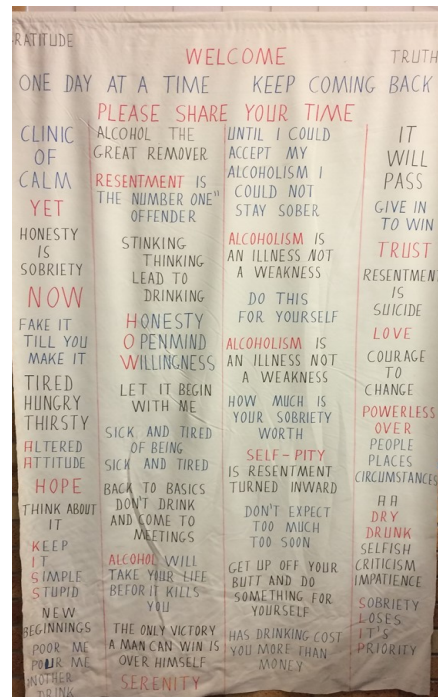 RATITUDE
WELCOME
TRUTH
ONE DAY AT A TIME KEEP COMING BACK
PLEASE SHARE YOUR TIME
CLINIC
OF
CALM
YET
HONESTY
IS
SOBRIETY
NOW
FAKE IT
TILL YOU
MAKE IT
TIRED
HUNGRY
THIRSTY
ALTERED
ATTITUDE
HOPE
THINK ABOUT
IT
KEEP
IT
SIMPLE
STUPID
NEW
BEGINNINGS
POOR ME
POUR ME
NOTHER
DRINK
ALCOHOL THE
GREAT REMOVER
RESENTMENT IS
THE NUMBER ONE"
OFFENDER
STINKING
THINKING
LEAD TO
DRINKING
HONESTY
OPENMIND
WILLINGNESS
LET IT BEGIN
WITH ME
SICK AND TIRED
OF BEING
SICK AND TIRED
BACK TO BASICS
DON'T DRINK
AND COME TO
MEETINGS
ALCOHOL WILL
TAKE YOUR LIFE
BEFOR IT KILLS
YOU
THE ONLY VICTORY
A MAN CAN WIN IS
OVER HIMSELF
SERENITY
UNTIL I COULD
ACCEPT MY
ALCOHOLISM I
COULD NOT
STAY SOBER
ALCOHOLISM IS
AN ILLNESS NOT
A WEAKNESS
DO THIS
FOR YOURSELF
ALCOHOLISM IS
AN ILLNESS NOT
A WEAKNESS
HOW MUCH IS
YOUR SOBRIETY
WORTH
SELF-PITY
IS RESENTMENT
TURNED INWARD
DON'T EXPECT
TOO MUCH
TOO SOON
GET UP OFF YOUR
BUTT AND DO
SOMETHING FOR
YOURSELF
HAS DRINKING COST
YOU MORE THAN
MONEY
IT
WILL
PASS
GIVE IN
TO WIN
TRUST
RESENTMEN
IS
SUICIDE
LOVE
COURAGE
TO
CHANGE
POWERLESS
OVER
PEOPLE
PLACES
CIRCUMSTANCES
AA
DRY
DRUNK
SELFISH
CRITICISM
IMPATIENCE
SOBRIETY
LOSES
IT'S
PRIORITY